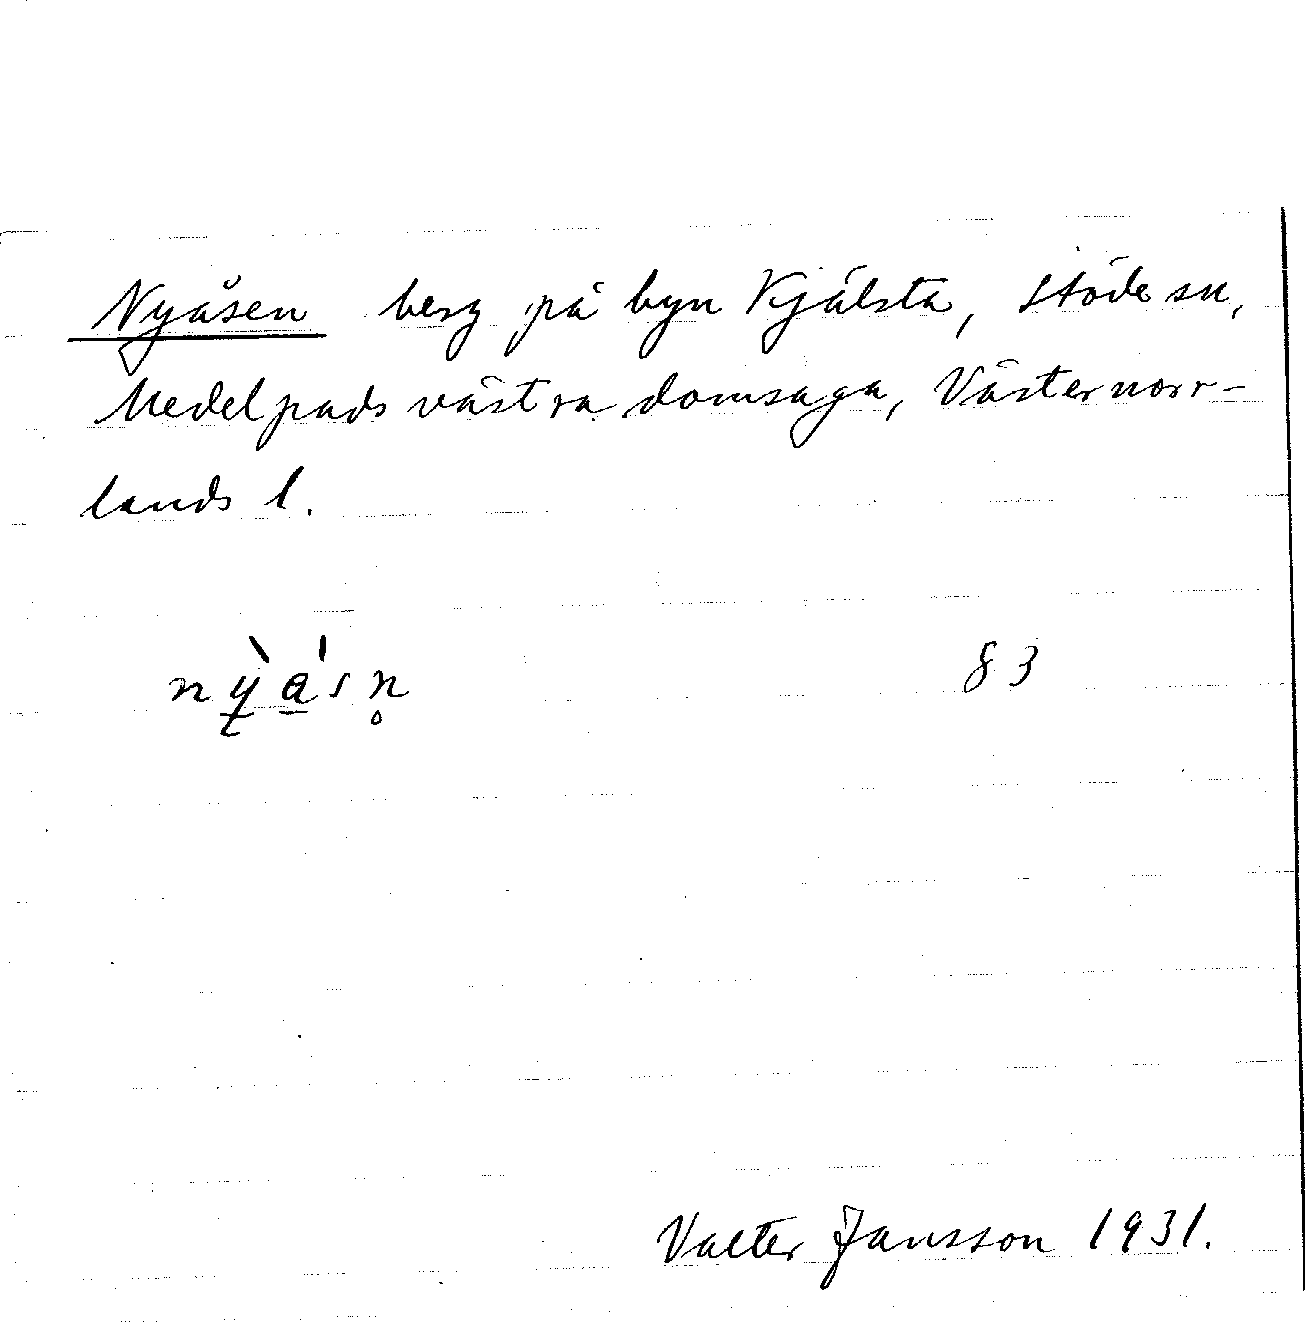 Nyåsen berg på byn Kjälsta, Stöde sn,
Medelpads västra domsaga, Västernorr-
lands l.
83
Valter Jansson 1931.